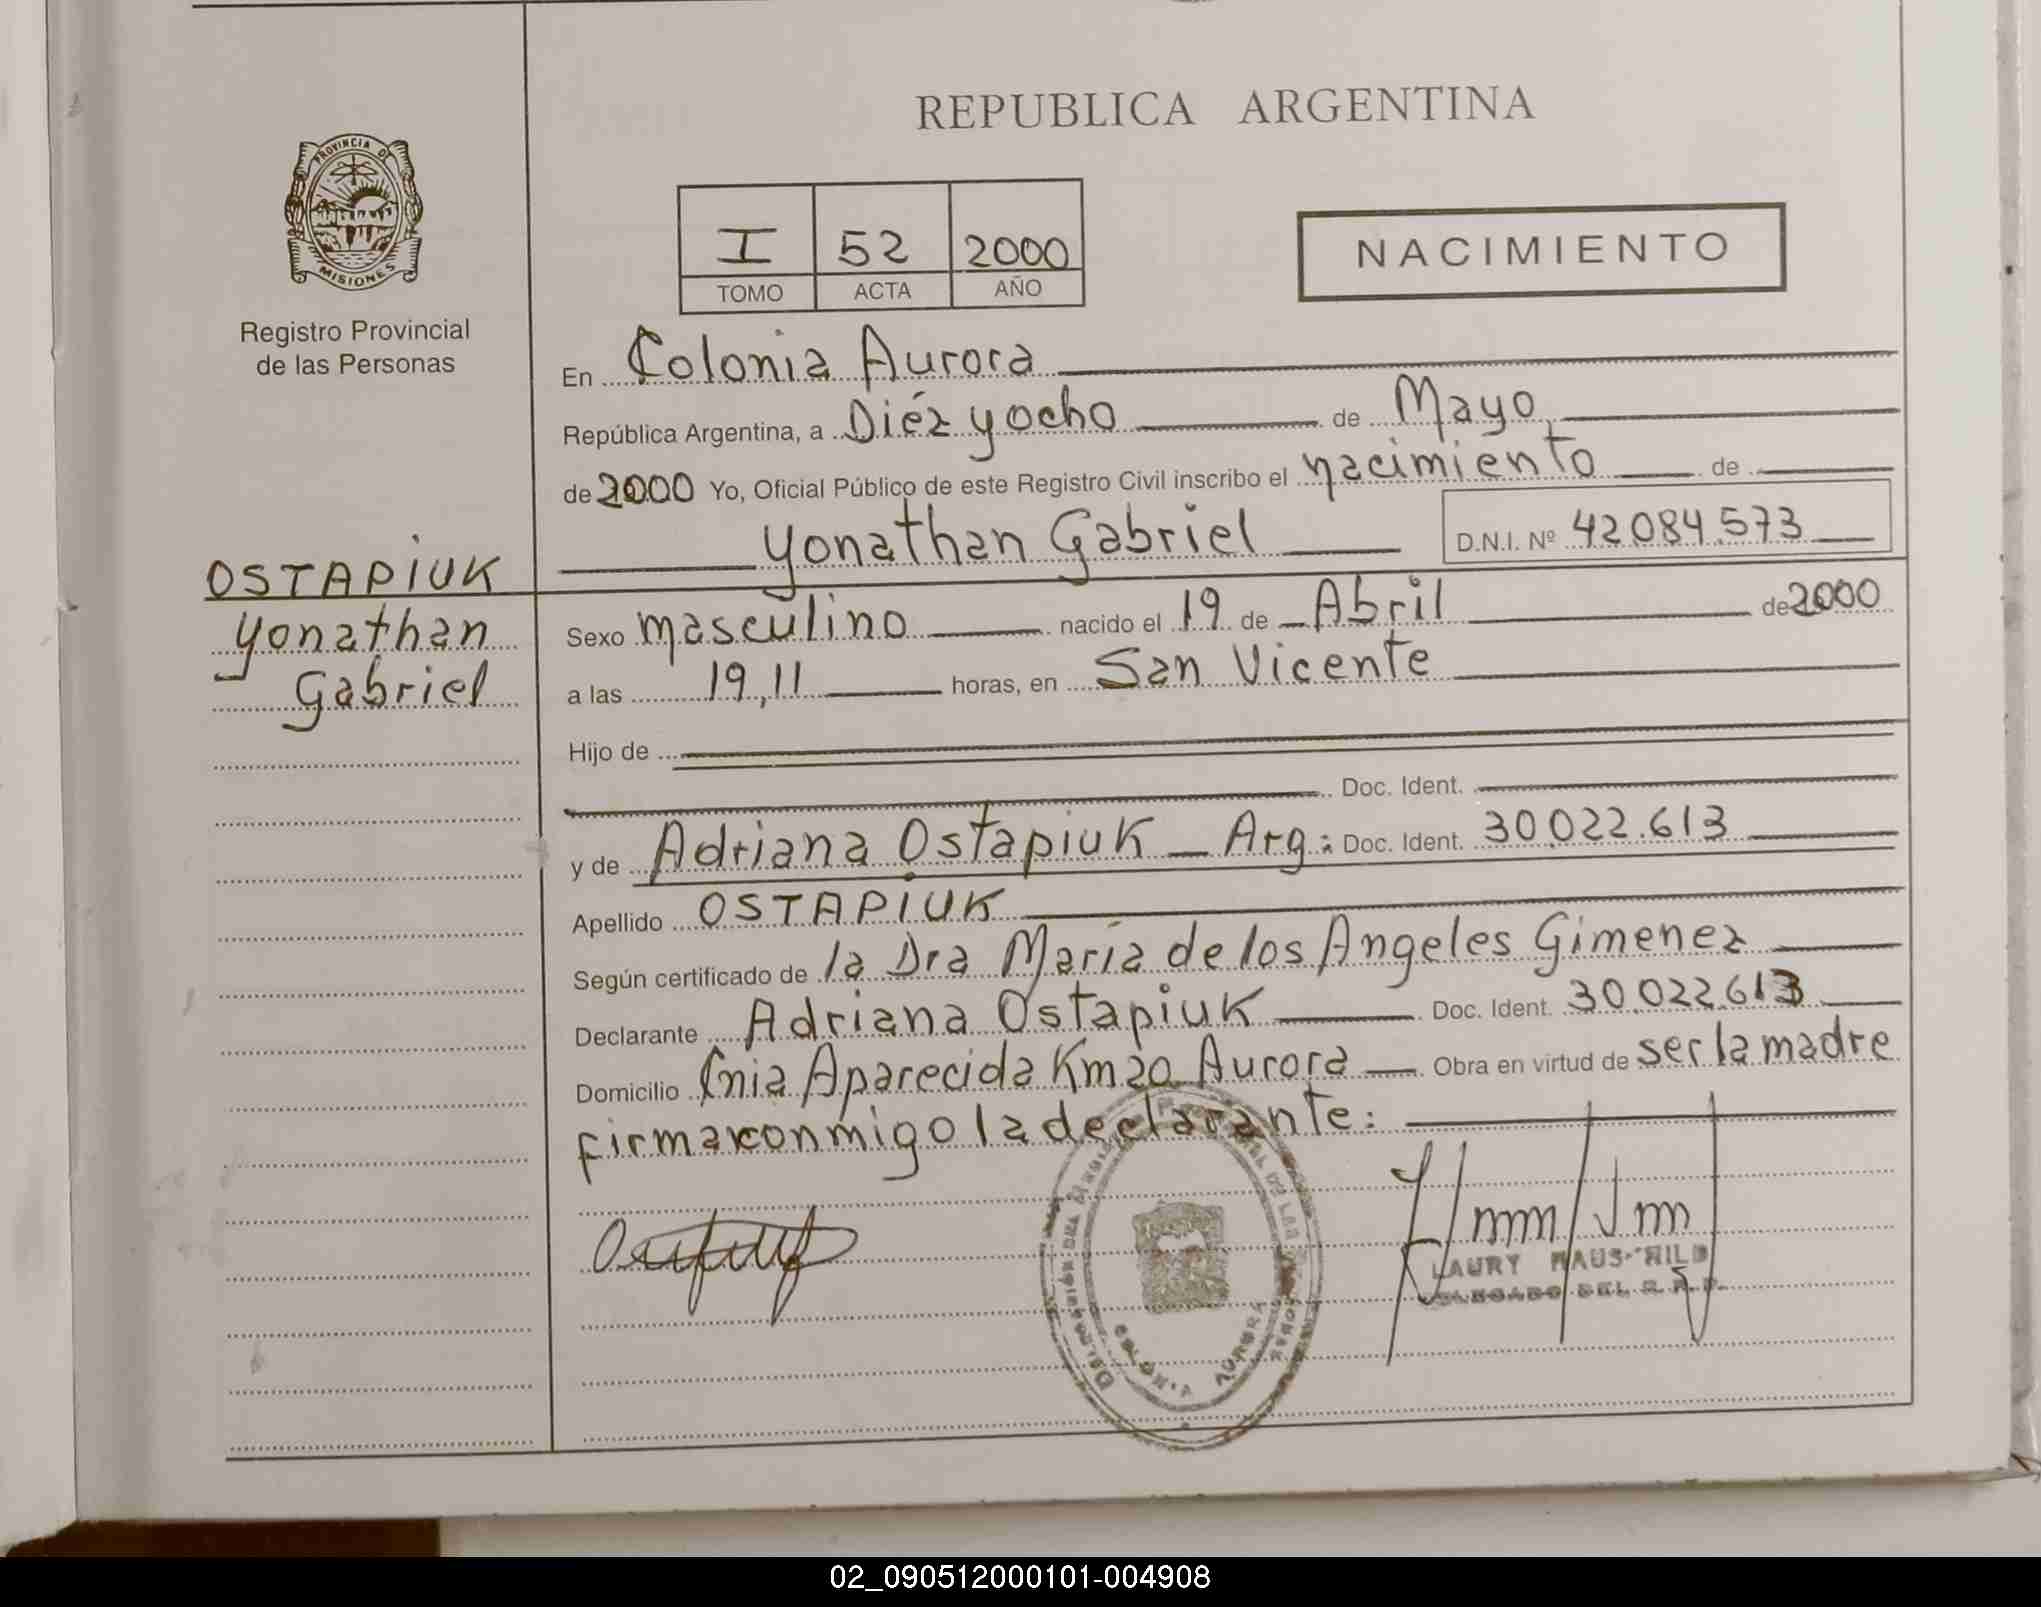 REPUBLICA ARGENTINA
PROVINCIA DE
MISIONES
Registro Provincial
de las Personas
I 52 2000
TOMO ACTA AÑO
NACIMIENTO
En Colonia Aurora
República Argentina, a Diéz y ocho de Mayo
de 2000 Yo, Oficial Público de este Registro Civil inscribo el nacimiento de
Yonathan Gabriel D.N.I. Nº 42.084.573
OSTAPIUK
Yonathan
Gabriel
Sexo masculino nacido el 19 de Abril de 2000
a las 19,11 horas, en San Vicente
Hijo de
Doc. Ident.
y de Adriana Ostapiuk Arg: Doc. Ident. 30.022.613
Apellido OSTAPIUK
Según certificado de la Dra María de los Angeles Gimenez
Declarante Adriana Ostapiuk Doc. Ident. 30.022.613
Domicilio Cnia Aparecida Km 20 Aurora Obra en virtud de ser la madre
firma conmigo la declarante:
LAURY
DEL R.R.P.
COLONIA AURORA
02_090512000101-004908